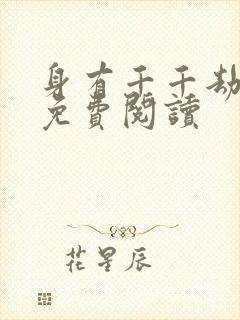 身有千千劫
免費閱讀
花星辰